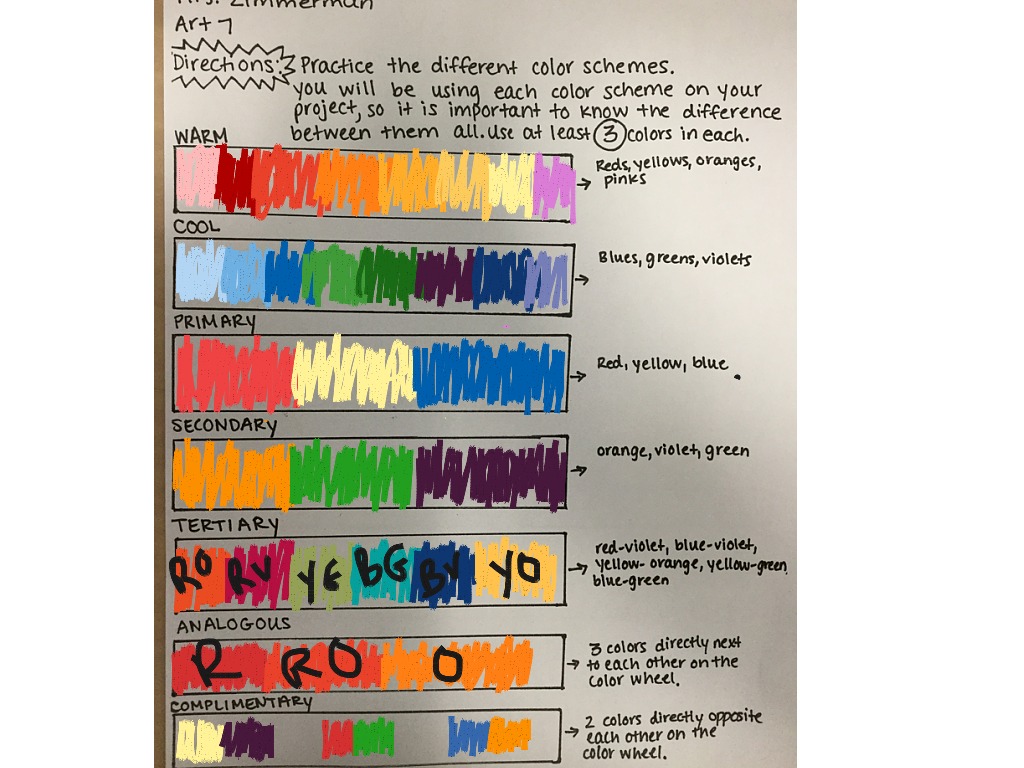 Mrs. Zimmerman
Art 7
Directions: Practice the different color schemes.
you will be using each color scheme on your
project, so it is important to know the difference
between them all. use at least 3 colors in each.
WARM
Reds, yellows, oranges,
pinks
COOL
Blues, greens, violets
PRIMARY
Red, yellow, blue
SECONDARY
orange, violet, green
TERTIARY
RO RV YG BG BV YO
red-violet, blue-violet,
yellow-orange, yellow-green,
blue-green
ANALOGOUS
R RO O
3 colors directly next
to each other on the
color wheel.
COMPLIMENTARY
2 colors directly opposite
each other on the
color wheel.